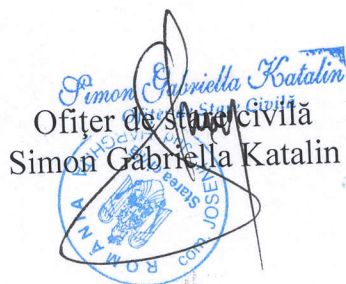 Simon Gabriella Katalin
Ofițer de Stare Civilă
Ofițer de stare civilă
Simon Gabriella Katalin
ROMÂNIA
Starea
com. JOSENI